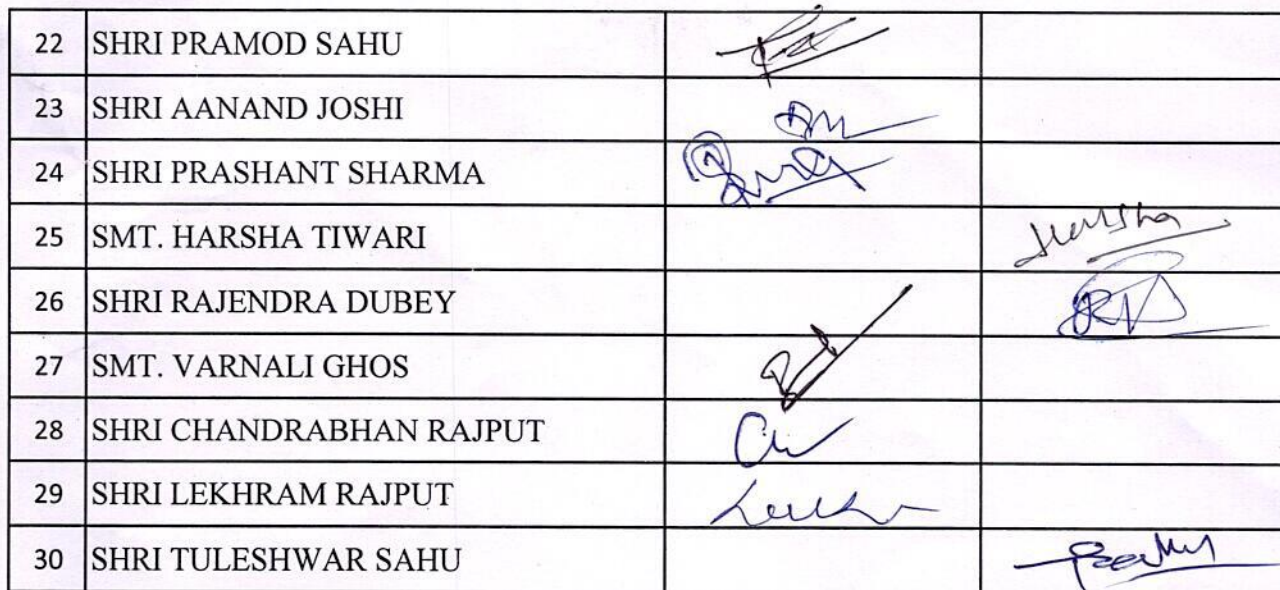 22 SHRI PRAMOD SAHU
23 SHRI AANAND JOSHI
24 SHRI PRASHANT SHARMA
25 SMT. HARSHA TIWARI Harsha
26 SHRI RAJENDRA DUBEY
27 SMT. VARNALI GHOS
28 SHRI CHANDRABHAN RAJPUT
29 SHRI LEKHRAM RAJPUT
30 SHRI TULESHWAR SAHU